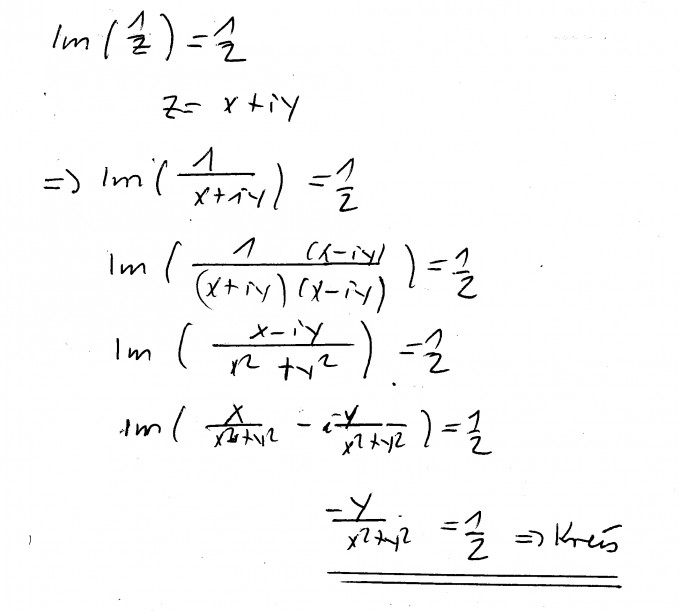 Im ( 1/z ) = 1/2
z = x + iy
=> Im ( 1/(x+iy) ) = 1/2
Im ( 1 (x-iy) / (x+iy) (x-iy) ) = 1/2
Im ( (x-iy)/(x² + y²) ) = 1/2
Im ( x/(x²+y²) - i y/(x²+y²) ) = 1/2
-y/(x²+y²) = 1/2 => Kreis